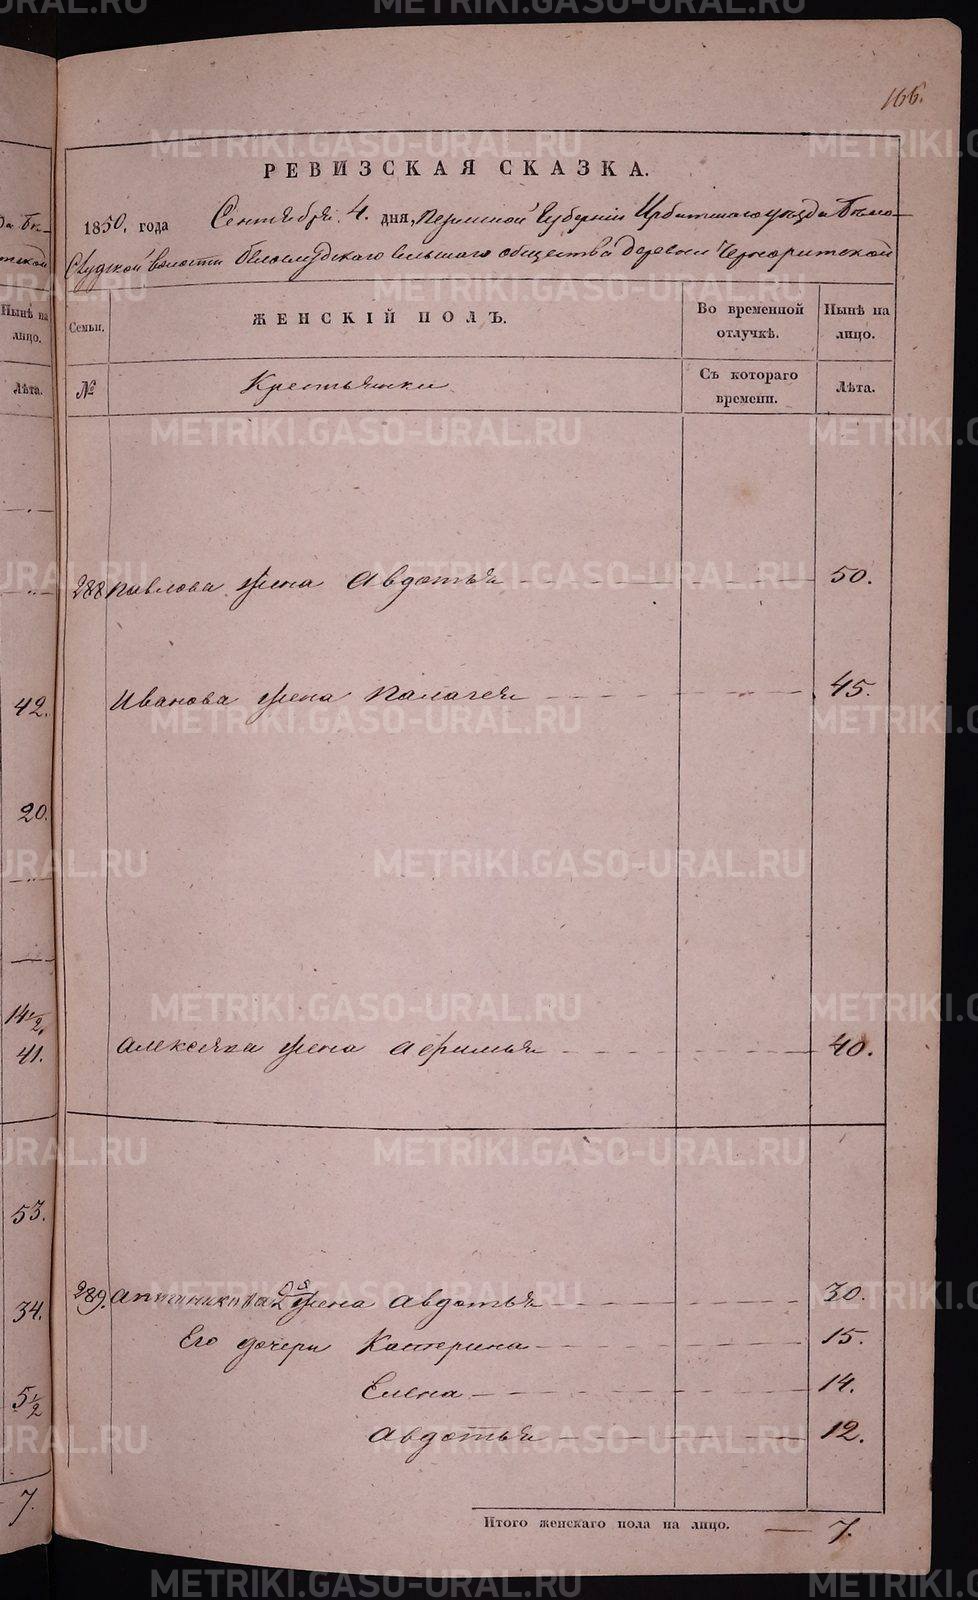 166.
РЕВИЗСКАЯ СКАЗКА.
1850, года Сентября 4. дня, Пермской Губернии Ирбитскаго уѣзда Бѣло-
Слудской волости Белослудскаго сельскаго общества деревни
Семьи. ЖЕНСКІЙ ПОЛЪ. Во временной отлучкѣ. Нынѣ на лицо.
№ Крестьянки Съ котораго времени. Лѣта.
288 Павлова жена Авдотья 50.
Иванова жена Палагея 45.
Алексѣева жена Афимья 40.
289. 2я жена Авдотья 30.
Его дочери Катерина 15.
Елена 14.
Авдотья 12.
Итого женскаго пола на лицо. 7.
Нынѣ на лицо.
Лѣта.
42.
20.
14 1/2.
41.
53.
34.
5 1/2
7.
METRIKI.GASO-URAL.RU